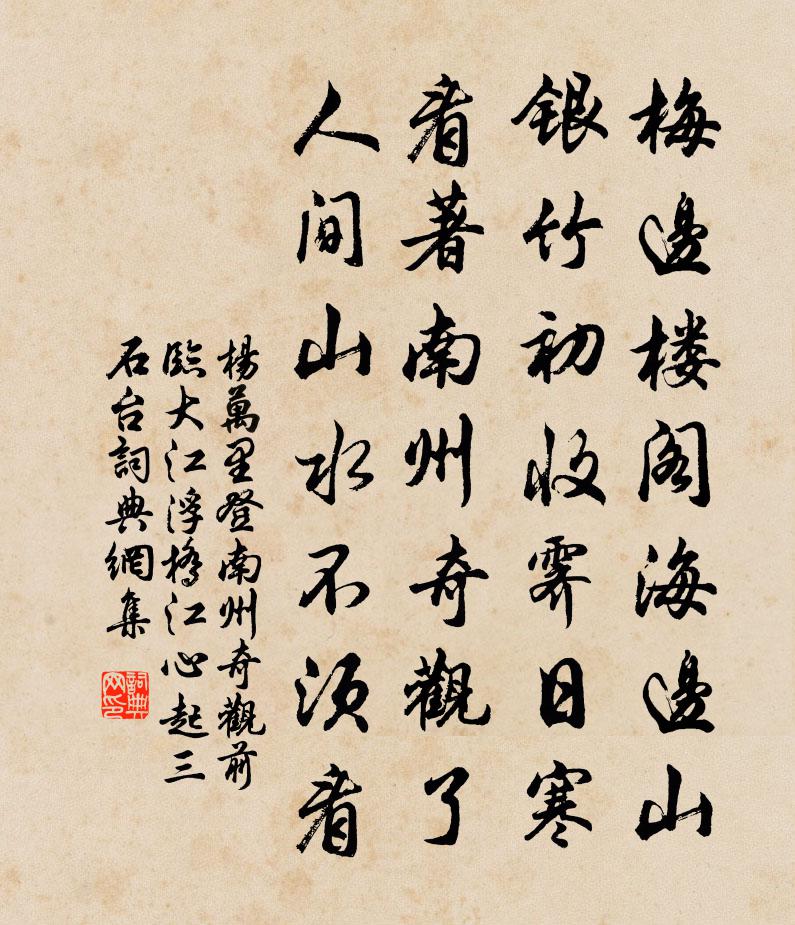 梅邊楼阁海邊山
银竹初收霁日寒
看著南州奇觀了
人间山水不须看
楊萬里登南州奇觀前
臨大江浮橋江心起三
石台詞典網集
詞典
网印